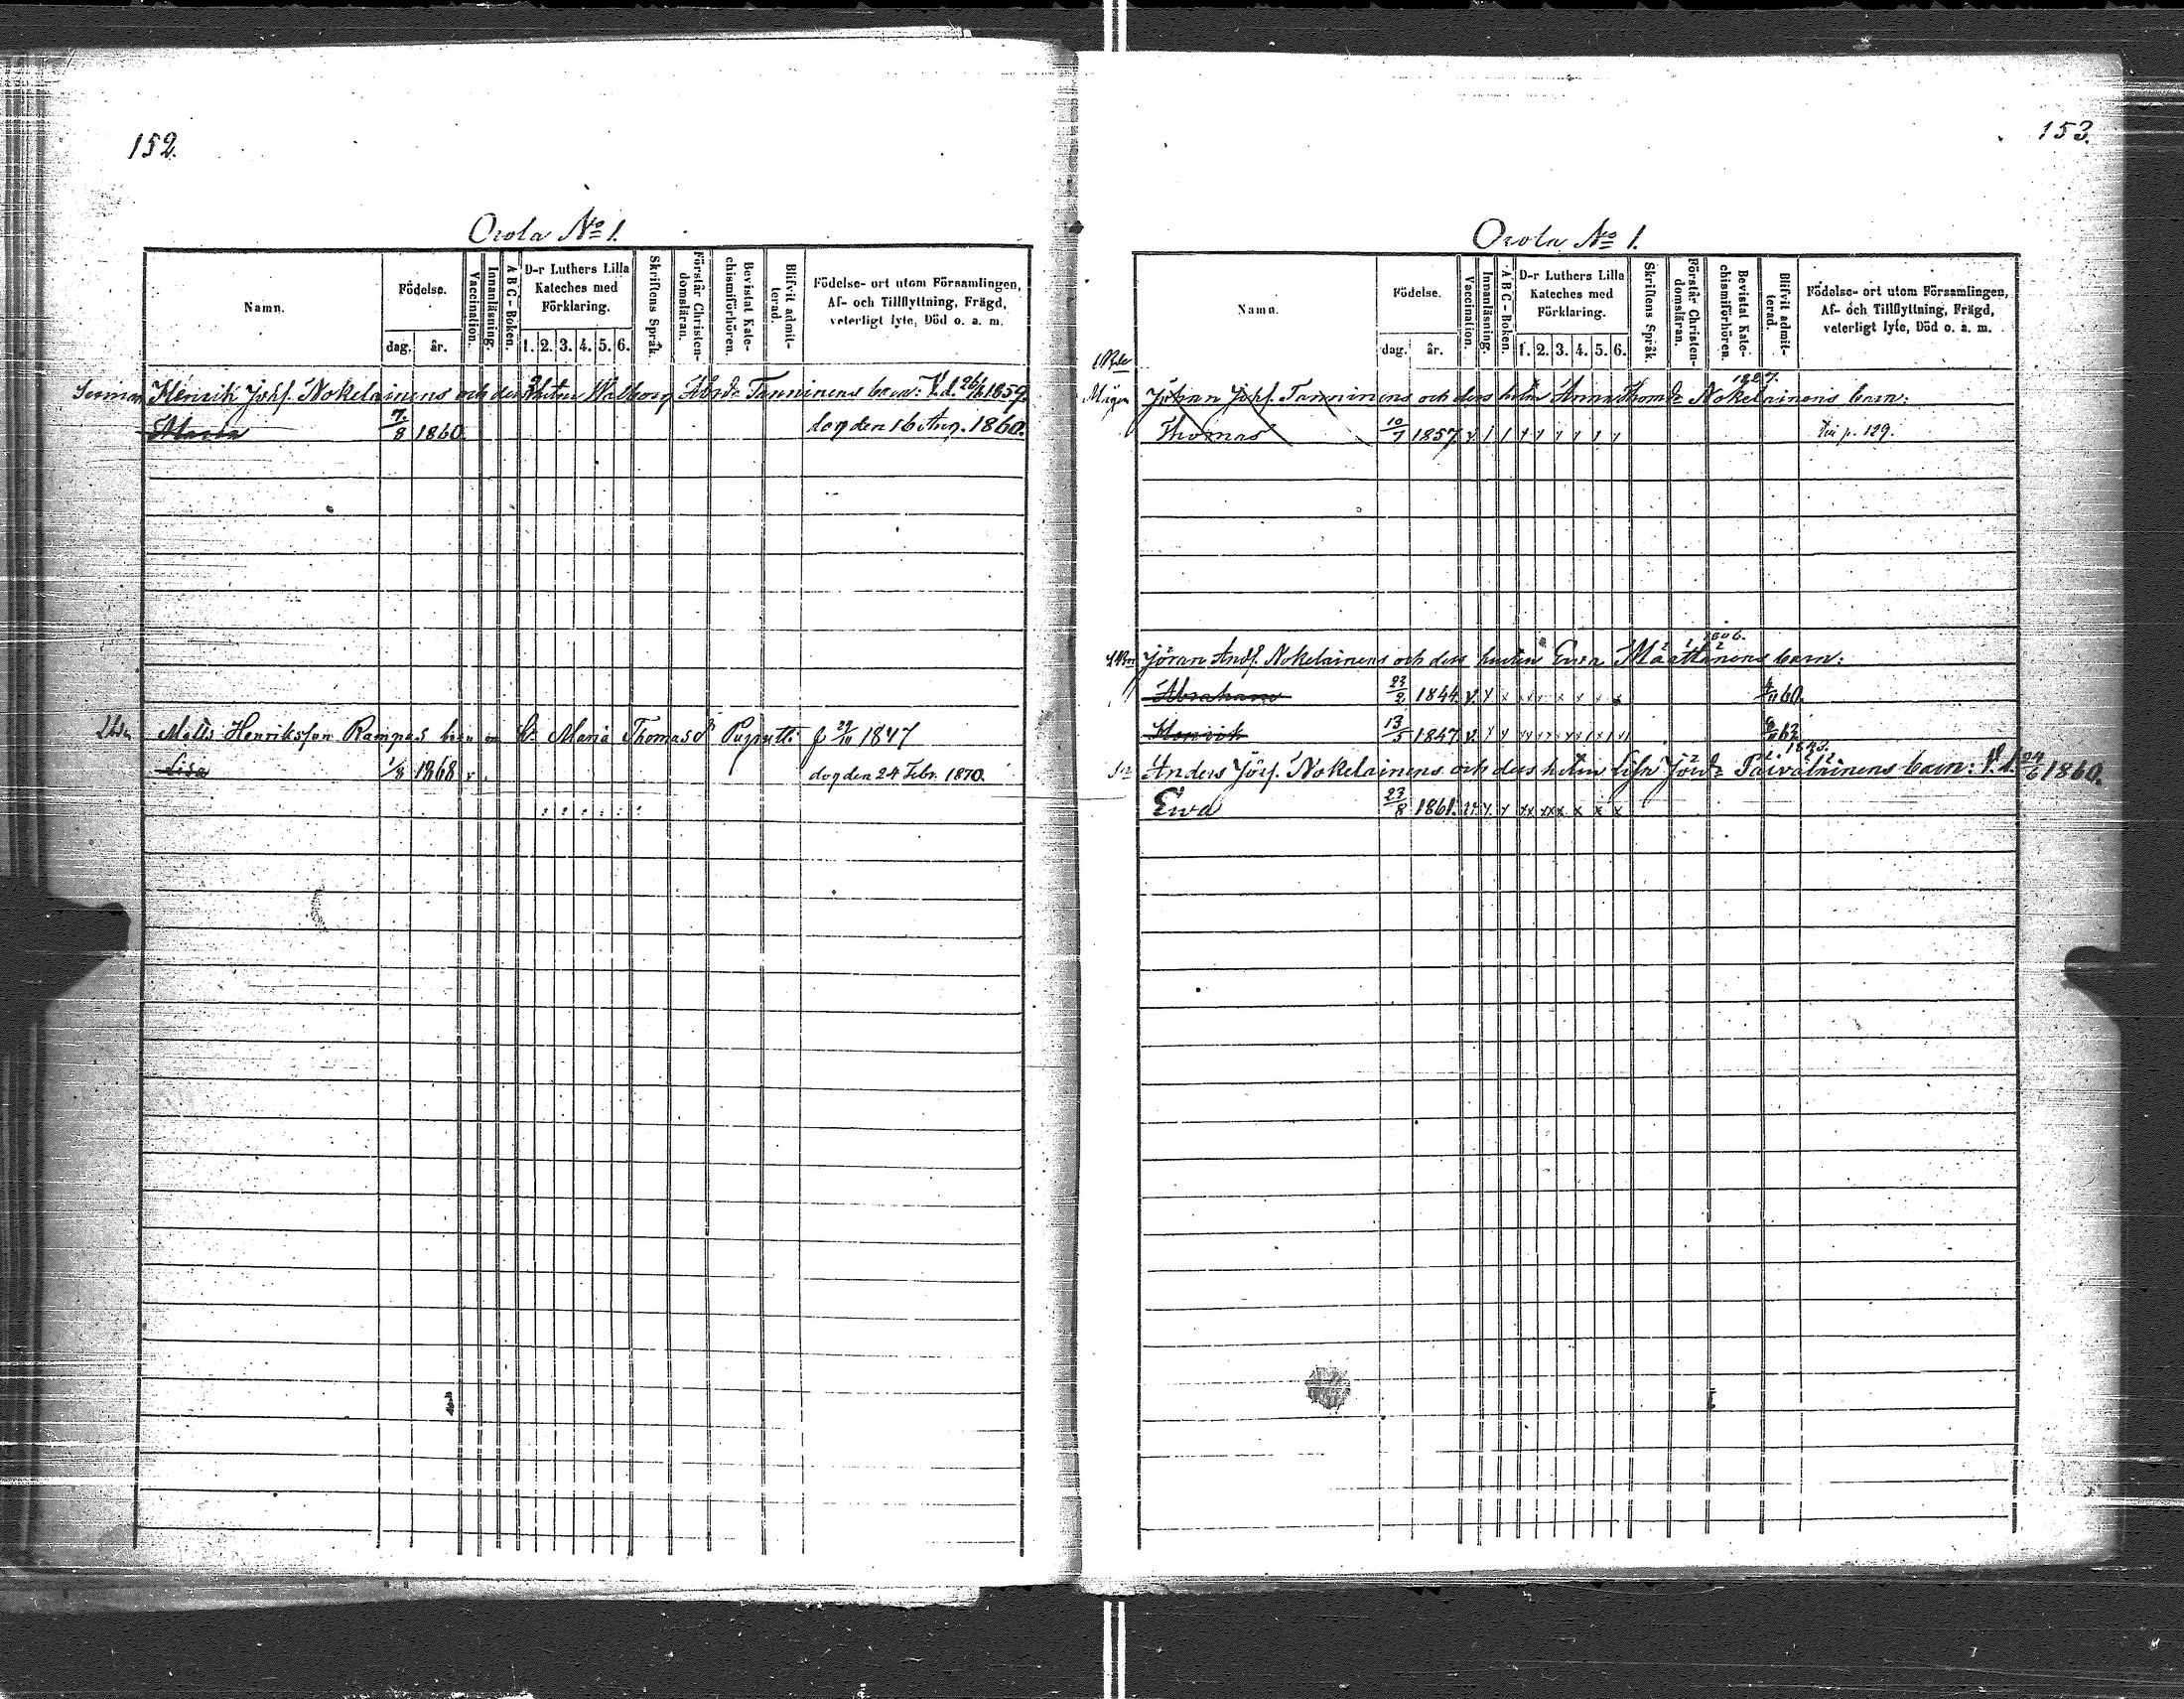 152.
Orola No 1.
Namn.
Födelse.
dag.
år.
Vaccination.
Innanläsning.
ABC-Boken.
D-r Luthers Lilla
Kateches med
Förklaring.
1. 2. 3. 4. 5. 6.
Skriftens Språk.
Förstår Christen-
domsläran.
Bevistat Kate-
chismiförhören.
Blifvit admit-
terad.
Födelse- ort utom Församlingen,
Af- och Tillflyttning, Frägd,
veterligt lyte, Död o. a. m.
Henrik Johs. Nokelainens och dess hustru Walborg Abrdr Tanninens barn: V.d. 26/12 1859.
Maria 7/8 1860. dog den 16 Aug. 1860.
Matts Henriksson Rampas barn Maria Thomasdr f 1847
Lisa 1/8 1868 v. dog den 24 Febr. 1870.
153.
Orola No 1.
Namn.
Födelse.
dag.
år.
Vaccination.
Innanläsning.
ABC-Boken.
D-r Luthers Lilla
Kateches med
Förklaring.
1. 2. 3. 4. 5. 6.
Skriftens Språk.
Förstår Christen-
domsläran.
Bevistat Kate-
chismiförhören.
Blifvit admit-
terad.
Födelse- ort utom Församlingen,
Af- och Tillflyttning, Frägd,
veterligt lyte, Död o. a. m.
1827.
Johan Johs. Tanninens och dess hustru Anna Thomdr Nokelainens barn:
Thomas 10/7 1857 p. 129.
1806.
Jöran Ands. Nokelainens och dess hustru Ewa Määttänens barn:
Abraham 23/2 1844. 60.
Henrik 13/5 1847 62
1843.
Anders Jörs. Nokelainens och dess hustru Lisa Jördr Päivälninens barn: V.d. 24/6 1860.
Ewa 23/8 1861.